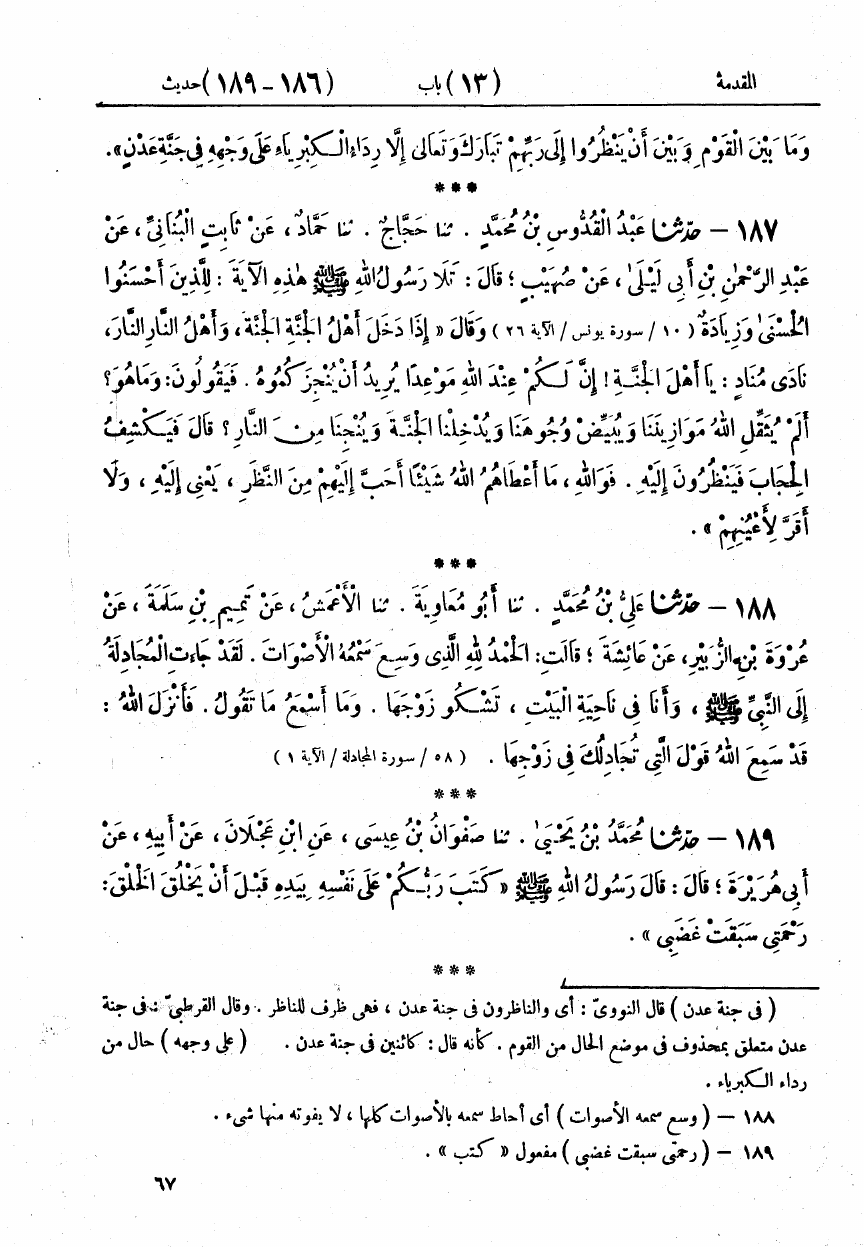 المقدمة (١٣) باب (١٨٦ – ١٨٩) حديث
وَمَا بَيْنَ الْقَوْمِ وَبَيْنَ أَنْ يَنْظُرُوا إِلَى رَبِّهِمْ تَبَارَكَ وَتَعَالَى إِلَّا رِدَاءُ الْكِبْرِيَاءِ عَلَى وَجْهِهِ فِي جَنَّةِ عَدْنٍ».
***
١٨٧ – حدّثنا عَبْدُ الْقُدُّوسِ بْنُ مُحَمَّدٍ . ثنا حَجَّاجٌ . ثنا حَمَّادٌ ، عَنْ ثَابِتٍ الْبُنَانِيِّ ، عَنْ
عَبْدِ الرَّحْمٰنِ بْنِ أَبِي لَيْلَىٰ ، عَنْ صُهَيْبٍ ؛ قَالَ : تَلَا رَسُولُ اللهِ ﷺ هٰذِهِ الْآيَةَ : لِلَّذِينَ أَحْسَنُوا
الْحُسْنَىٰ وَزِيَادَةٌ ( ١٠ / سورة يونس / الآية ٢٦ ) وَقَالَ « إِذَا دَخَلَ أَهْلُ الْجَنَّةِ الْجَنَّةَ ، وَأَهْلُ النَّارِ النَّارَ ،
نَادَى مُنَادٍ : يَا أَهْلَ الْجَنَّةِ ! إِنَّ لَكُمْ عِنْدَ اللهِ مَوْعِدًا يُرِيدُ أَنْ يُنْجِزَكُمُوهُ . فَيَقُولُونَ : وَمَا هُوَ ؟
أَلَمْ يُثَقِّلِ اللهُ مَوَازِينَنَا وَيُبَيِّضْ وُجُوهَنَا وَيُدْخِلْنَا الْجَنَّةَ وَيُنْجِنَا مِنَ النَّارِ ؟ قَالَ فَيَكْشِفُ
الْحِجَابَ فَيَنْظُرُونَ إِلَيْهِ . فَوَاللهِ ، مَا أَعْطَاهُمُ اللهُ شَيْئًا أَحَبَّ إِلَيْهِمْ مِنَ النَّظَرِ ، يَعْنِي إِلَيْهِ ، وَلَا
أَقَرَّ لِأَعْيُنِهِمْ » .
***
١٨٨ – حدّثنا عَلِيُّ بْنُ مُحَمَّدٍ . ثنا أَبُو مُعَاوِيَةَ . ثنا الْأَعْمَشُ ، عَنْ تَمِيمِ بْنِ سَلَمَةَ ، عَنْ
عُرْوَةَ بْنِ الزُّبَيْرِ ، عَنْ عَائِشَةَ ؛ قَالَتِ : الْحَمْدُ لِلهِ الَّذِي وَسِعَ سَمْعُهُ الْأَصْوَاتَ . لَقَدْ جَاءَتِ الْمُجَادِلَةُ
إِلَى النَّبِيِّ ﷺ ، وَأَنَا فِي نَاحِيَةِ الْبَيْتِ ، تَشْكُو زَوْجَهَا . وَمَا أَسْمَعُ مَا تَقُولُ . فَأَنْزَلَ اللهُ :
قَدْ سَمِعَ اللهُ قَوْلَ الَّتِي تُجَادِلُكَ فِي زَوْجِهَا . ( ٥٨ / سورة المجادلة / الآية ١ )
***
١٨٩ – حدّثنا مُحَمَّدُ بْنُ يَحْيَىٰ . ثنا صَفْوَانُ بْنُ عِيسَى ، عَنِ ابْنِ عَجْلَانَ ، عَنْ أَبِيهِ ، عَنْ
أَبِي هُرَيْرَةَ ؛ قَالَ : قَالَ رَسُولُ اللهِ ﷺ « كَتَبَ رَبُّكُمْ عَلَى نَفْسِهِ بِيَدِهِ قَبْلَ أَنْ يَخْلُقَ الْخَلْقَ :
رَحْمَتِي سَبَقَتْ غَضَبِي » .
***
( فى جنة عدن ) قال النووىّ : أى والناظرون فى جنة عدن ، فهى ظرف للناظر . وقال القرطبىّ : فى جنة
عدن متعلق بمحذوف فى موضع الحال من القوم . كأنه قال : كائنين فى جنة عدن . ( على وجهه ) حال من
رداء الكبرياء .
١٨٨ – ( وسع سمعه الأصوات ) أى أحاط سمعه بالأصوات كلها ، لا يفوته منها شىء .
١٨٩ – ( رحمتى سبقت غضبى ) مفعول « كتب » .
٦٧